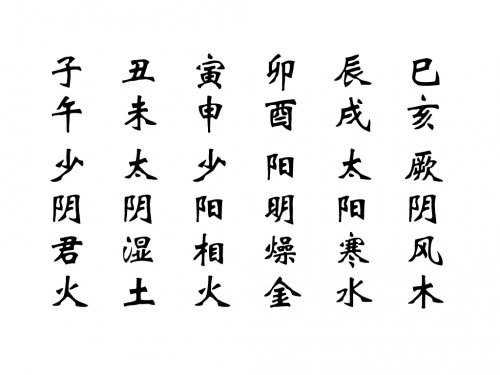 子午少阴君火
丑未太阴湿土
寅申少阳相火
卯酉阳明燥金
辰戌太阳寒水
巳亥厥阴风木